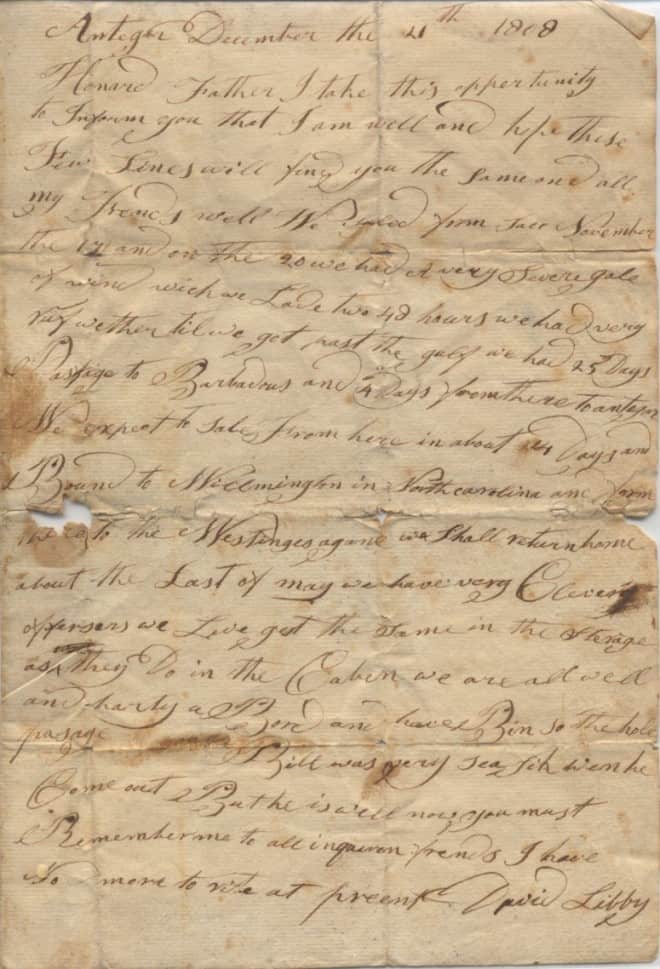 Antegar December the 21th 1808
Honard Father I take this oppertunity
to Inform you that I am well and hope these
Few Lines will find you the same and all
my Frends well We sailed form Saco November
the 17 and on the 20 we had a very Severe gale
of wind wich we Lade two 48 hours we had very
ruf wether til we got past the gulf we had 25 Days
Pasage to Barbadous and 4 Days from there to antegar
We expect to sale from here in about 14 Days and
Bound to Willmington in North carolina and form
there to the Westinges agane we Shall return home
about the Last of may we have very Clever
offersers we Live gest the same in the sterage
as they Do in the Caben we are all well
and harty a Bord and have Bin so the hole
pasage Bill was very sea sik wen he
Come out But he is well now you must
Remember me to all inquiren frends I have
No more to rite at preent David Libby